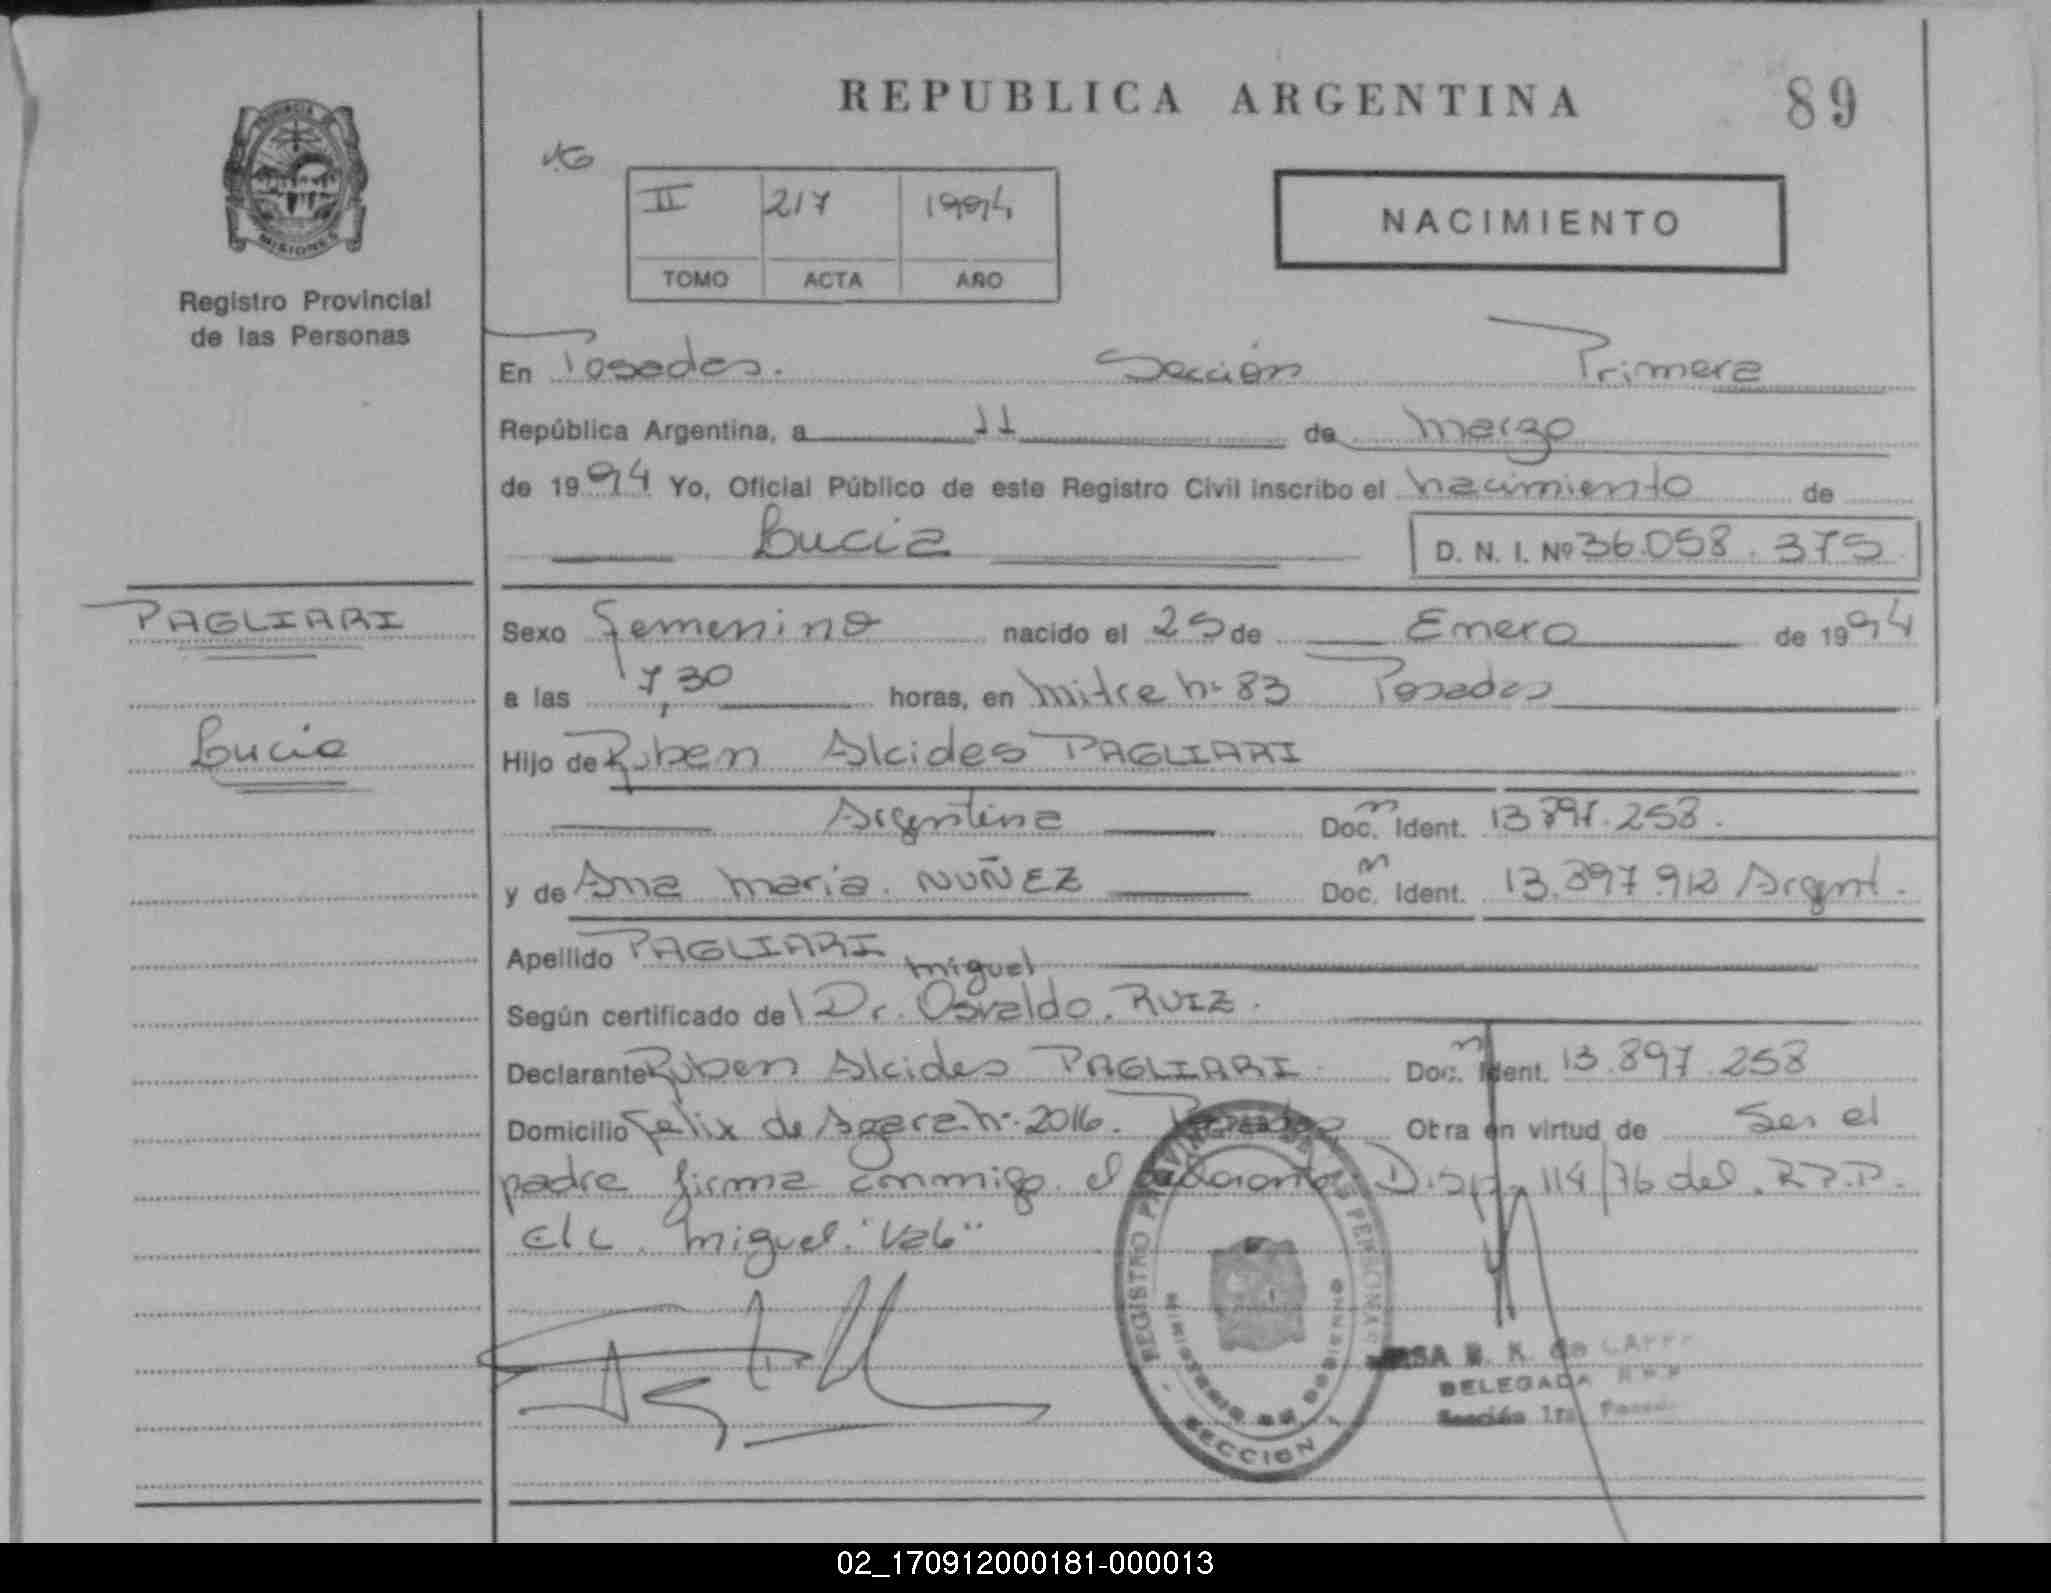 REPUBLICA ARGENTINA
89
PROVINCIA
MISIONES
Registro Provincial
de las Personas
II 217 1994
TOMO ACTA AÑO
NACIMIENTO
En Posadas. Sección Primera
República Argentina, a 11 de marzo
de 1994 Yo, Oficial Público de este Registro Civil inscribo el nacimiento de
Lucia D. N. I. Nº 36.058.375
PAGLIARI
Lucia
Sexo Femenino nacido el 25 de Enero de 1994
a las 7,30 horas, en mitre nº 83 Posadas
Hijo de Ruben Alcides PAGLIARI
Argentina Doc. Ident. 13.897.258.
y de Ana maria. NUÑEZ Doc. Ident. 13.897.912 Argent.
Apellido PAGLIARI
miguel
Según certificado del Dr. Osvaldo. RUIZ.
Declarante Ruben Alcides PAGLIARI Doc. Ident. 13.897.258
Domicilio Felix de Azara nº 2016. Posadas Otra en virtud de Ser el
padre firma conmigo el declarante Disp. 114/76 del. R.P.P.
E/L. miguel. "Vale"
REGISTRO PROVINCIAL DE LAS PERSONAS
MINISTERIO DE GOBIERNO
SECCION 1
DELEGADA R.P.P
Sección 1ra Posadas
02_170912000181-000013